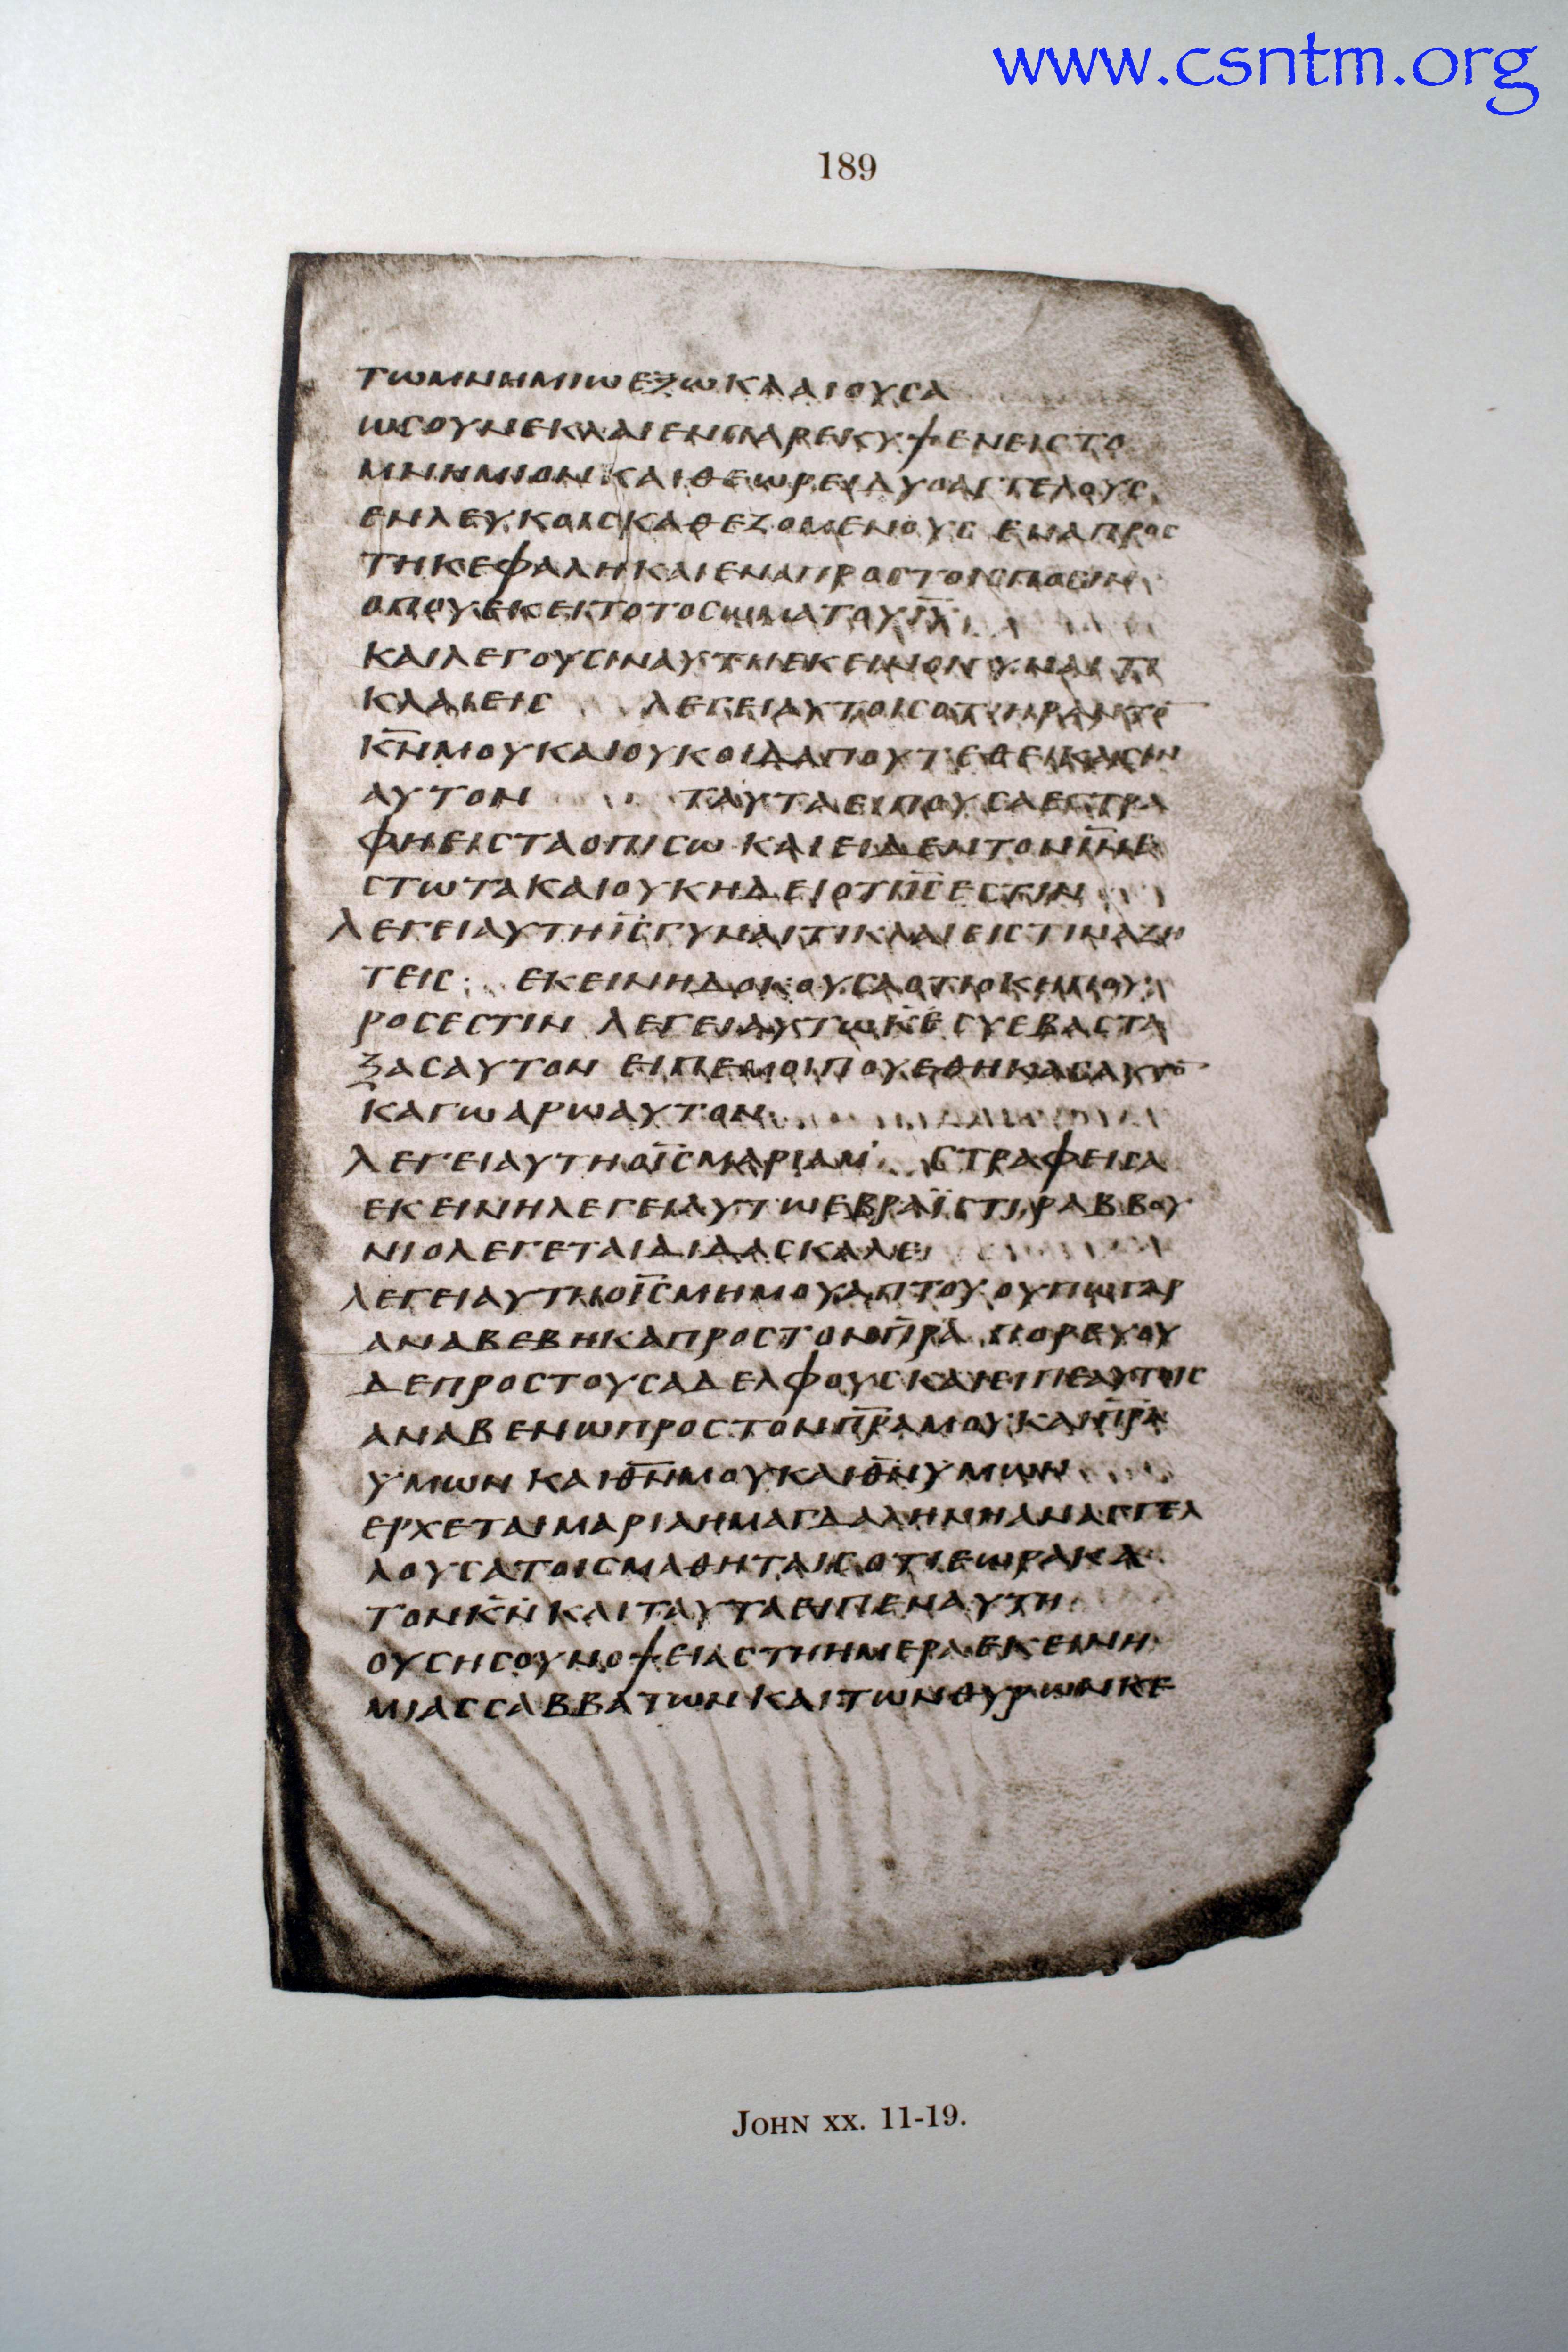 www.csntm.org
189
ΤΩΜΝΗΜΙΩΕΞΩΚΛΑΙΟΥCΑ
ΩCΟΥΝΕΚΛΑΙΕΝΠΑΡΕΚΥΨΕΝΕΙCΤΟ
ΜΝΗΜΙΟΝΚΑΙΘΕΩΡΕΙΔΥΟΑΓΓΕΛΟΥC
ΕΝΛΕΥΚΟΙCΚΑΘΕΖΟΜΕΝΟΥC ΕΝΑΠΡΟC
ΤΗΚΕΦΑΛΗΚΑΙΕΝΑΠΡΟCΤΟΙCΠΟCΙΝ
ΟΠΟΥΕΚΕΙΤΟΤΟCΩΜΑΤΟΥΙ̅Υ̅
ΚΑΙΛΕΓΟΥCΙΝΑΥΤΗΕΚΕΙΝΟΙΓΥΝΑΙΤΙ
ΚΛΑΙΕΙC ΛΕΓΕΙΑΥΤΟΙCΟΤΙΗΡΑΝΤΟ̅
Κ̅Ν̅ΜΟΥΚΑΙΟΥΚΟΙΔΑΠΟΥΤΕΘΕΙΚΑCΙΝ
ΑΥΤΟΝ ΤΑΥΤΑΕΙΠΟΥCΑΕCΤΡΑ
ΦΗΕΙCΤΑΟΠΙCΩ ΚΑΙΕΙΔΕΝΤΟΝΙ̅Ν̅Ε
CΤΩΤΑΚΑΙΟΥΚΗΔΕΙΟΤΙΙ̅C̅ΕCΤΙΝ
ΛΕΓΕΙΑΥΤΗΙ̅C̅ΓΥΝΑΙΤΙΚΛΑΙΕΙCΤΙΝΑΖΗ
ΤΕΙC ΕΚΕΙΝΗΔΟΚΟΥCΑΟΤΙΟΚΗΠΟΥ
ΡΟCΕCΤΙΝ ΛΕΓΕΙΑΥΤΩΚ̅Ε̅CΥΕΒΑCΤΑ
ΞΑCΑΥΤΟΝ ΕΙΠΕΜΟΙΠΟΥΕΘΗΚΑCΑΥΤΟ̅
ΚΑΓΩΑΡΩΑΥΤΟΝ
ΛΕΓΕΙΑΥΤΗΟΙ̅C̅ΜΑΡΙΑΜ CΤΡΑΦΕΙCΑ
ΕΚΕΙΝΗΛΕΓΕΙΑΥΤΩΕΒΡΑΪCΤΙ ΡΑΒΒΟΥ
ΝΙΟΛΕΓΕΤΑΙΔΙΔΑCΚΑΛΕ
ΛΕΓΕΙΑΥΤΗΟΙ̅C̅ΜΗΜΟΥΑΠΤΟΥ ΟΥΠΩΓΑΡ
ΑΝΑΒΕΒΗΚΑΠΡΟCΤΟΝΠ̅Ρ̅Α̅ ΠΟΡΕΥΟΥ
ΔΕΠΡΟCΤΟΥCΑΔΕΛΦΟΥCΚΑΙΕΙΠΕΑΥΤΟΙC
ΑΝΑΒΕΝΩΠΡΟCΤΟΝΠ̅Ρ̅Α̅ΜΟΥΚΑΙΠ̅Ρ̅Α̅
ΥΜΩΝ ΚΑΙΘ̅Ν̅ΜΟΥΚΑΙΘ̅Ν̅ΥΜΩΝ
ΕΡΧΕΤΑΙΜΑΡΙΑΗΜΑΓΔΑΛΗΝΗΑΝΑΓΓΕΛ
ΛΟΥCΑΤΟΙCΜΑΘΗΤΑΙCΟΤΙΕΩΡΑΚΑ
ΤΟΝΚ̅Ν̅ΚΑΙΤΑΥΤΑΕΙΠΕΝΑΥΤΗ
ΟΥCΗCΟΥΝΟΨΕΙΑCΤΗΗΜΕΡΑΕΚΕΙΝΗ
ΜΙΑCCΑΒΒΑΤΩΝΚΑΙΤΩΝΘΥΡΩΝΚΕ
JOHN XX. 11-19.